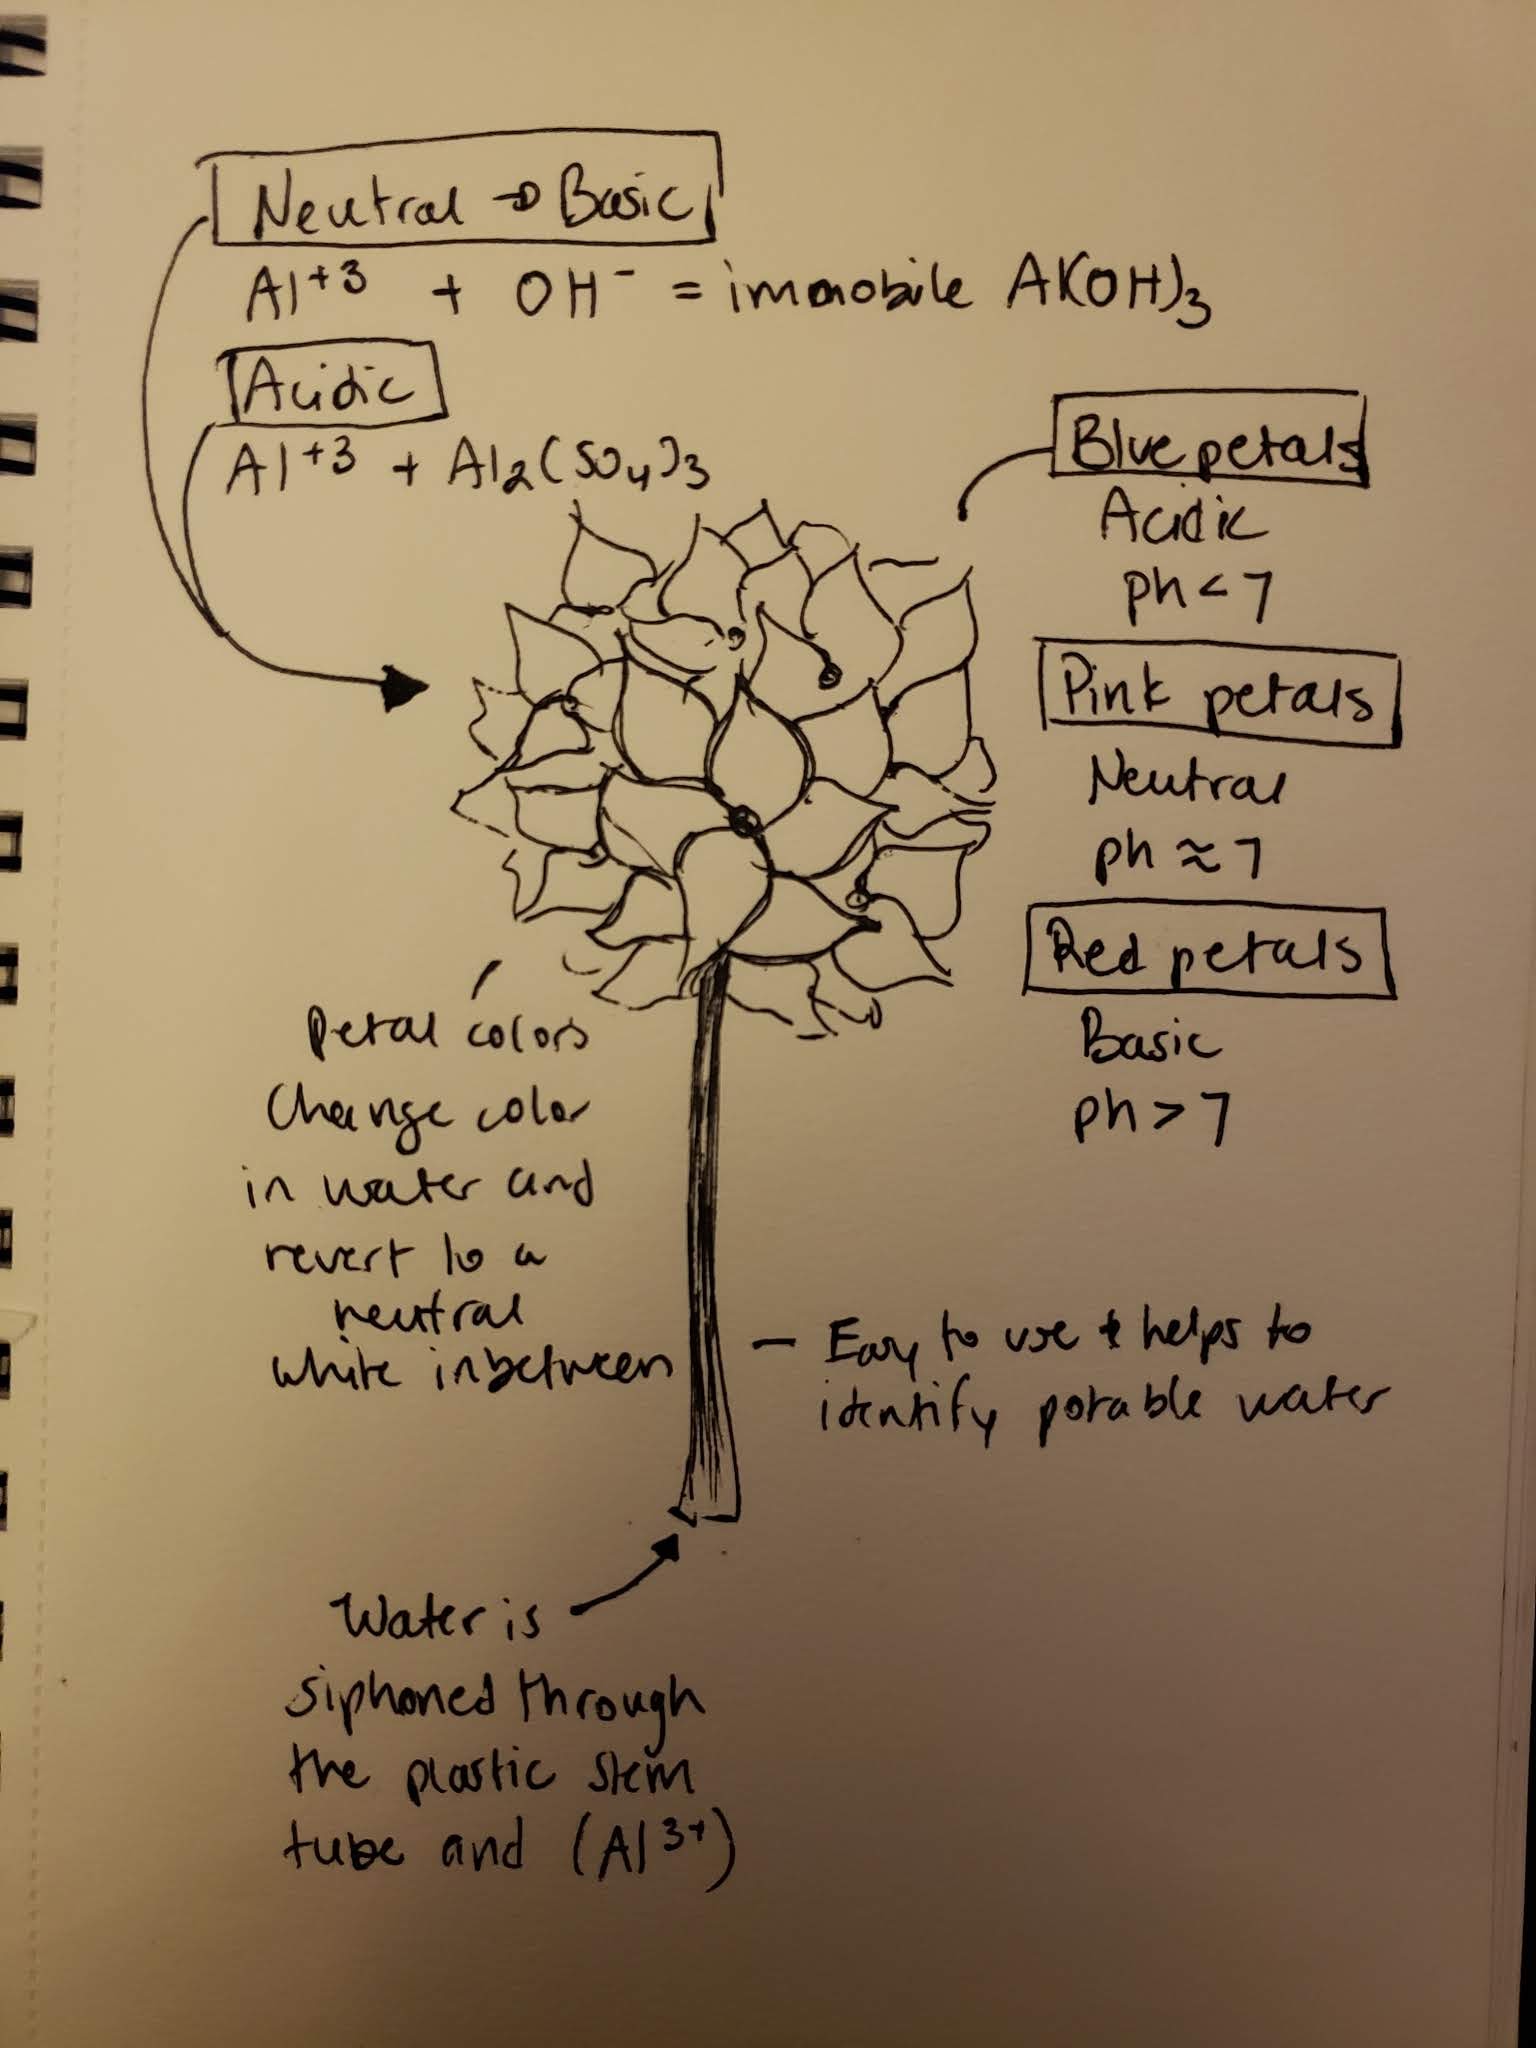 Neutral → Basic
Al+3 + OH- = immobile Al(OH)3
Acidic
Al+3 + Al2(SO4)3
Blue petals
Acidic
ph < 7
Pink petals
Neutral
ph ≈ 7
Red petals
Basic
ph > 7
Petal colors
Change color
in water and
revert to a
neutral
white inbetween
- Easy to use + helps to
identify potable water
Water is
siphoned through
the plastic stem
tube and (Al3+)